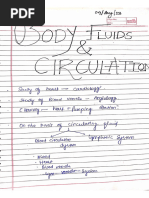 02/Aug/24
BODY FLUIDS
&
CIRCULATION
Study of Heart → Cardiology
Study of Blood vessels → Angiology
On the basis of circulating fluid
Blood circulatory System
Lymphatic System
Blood
Heart
Blood vessels